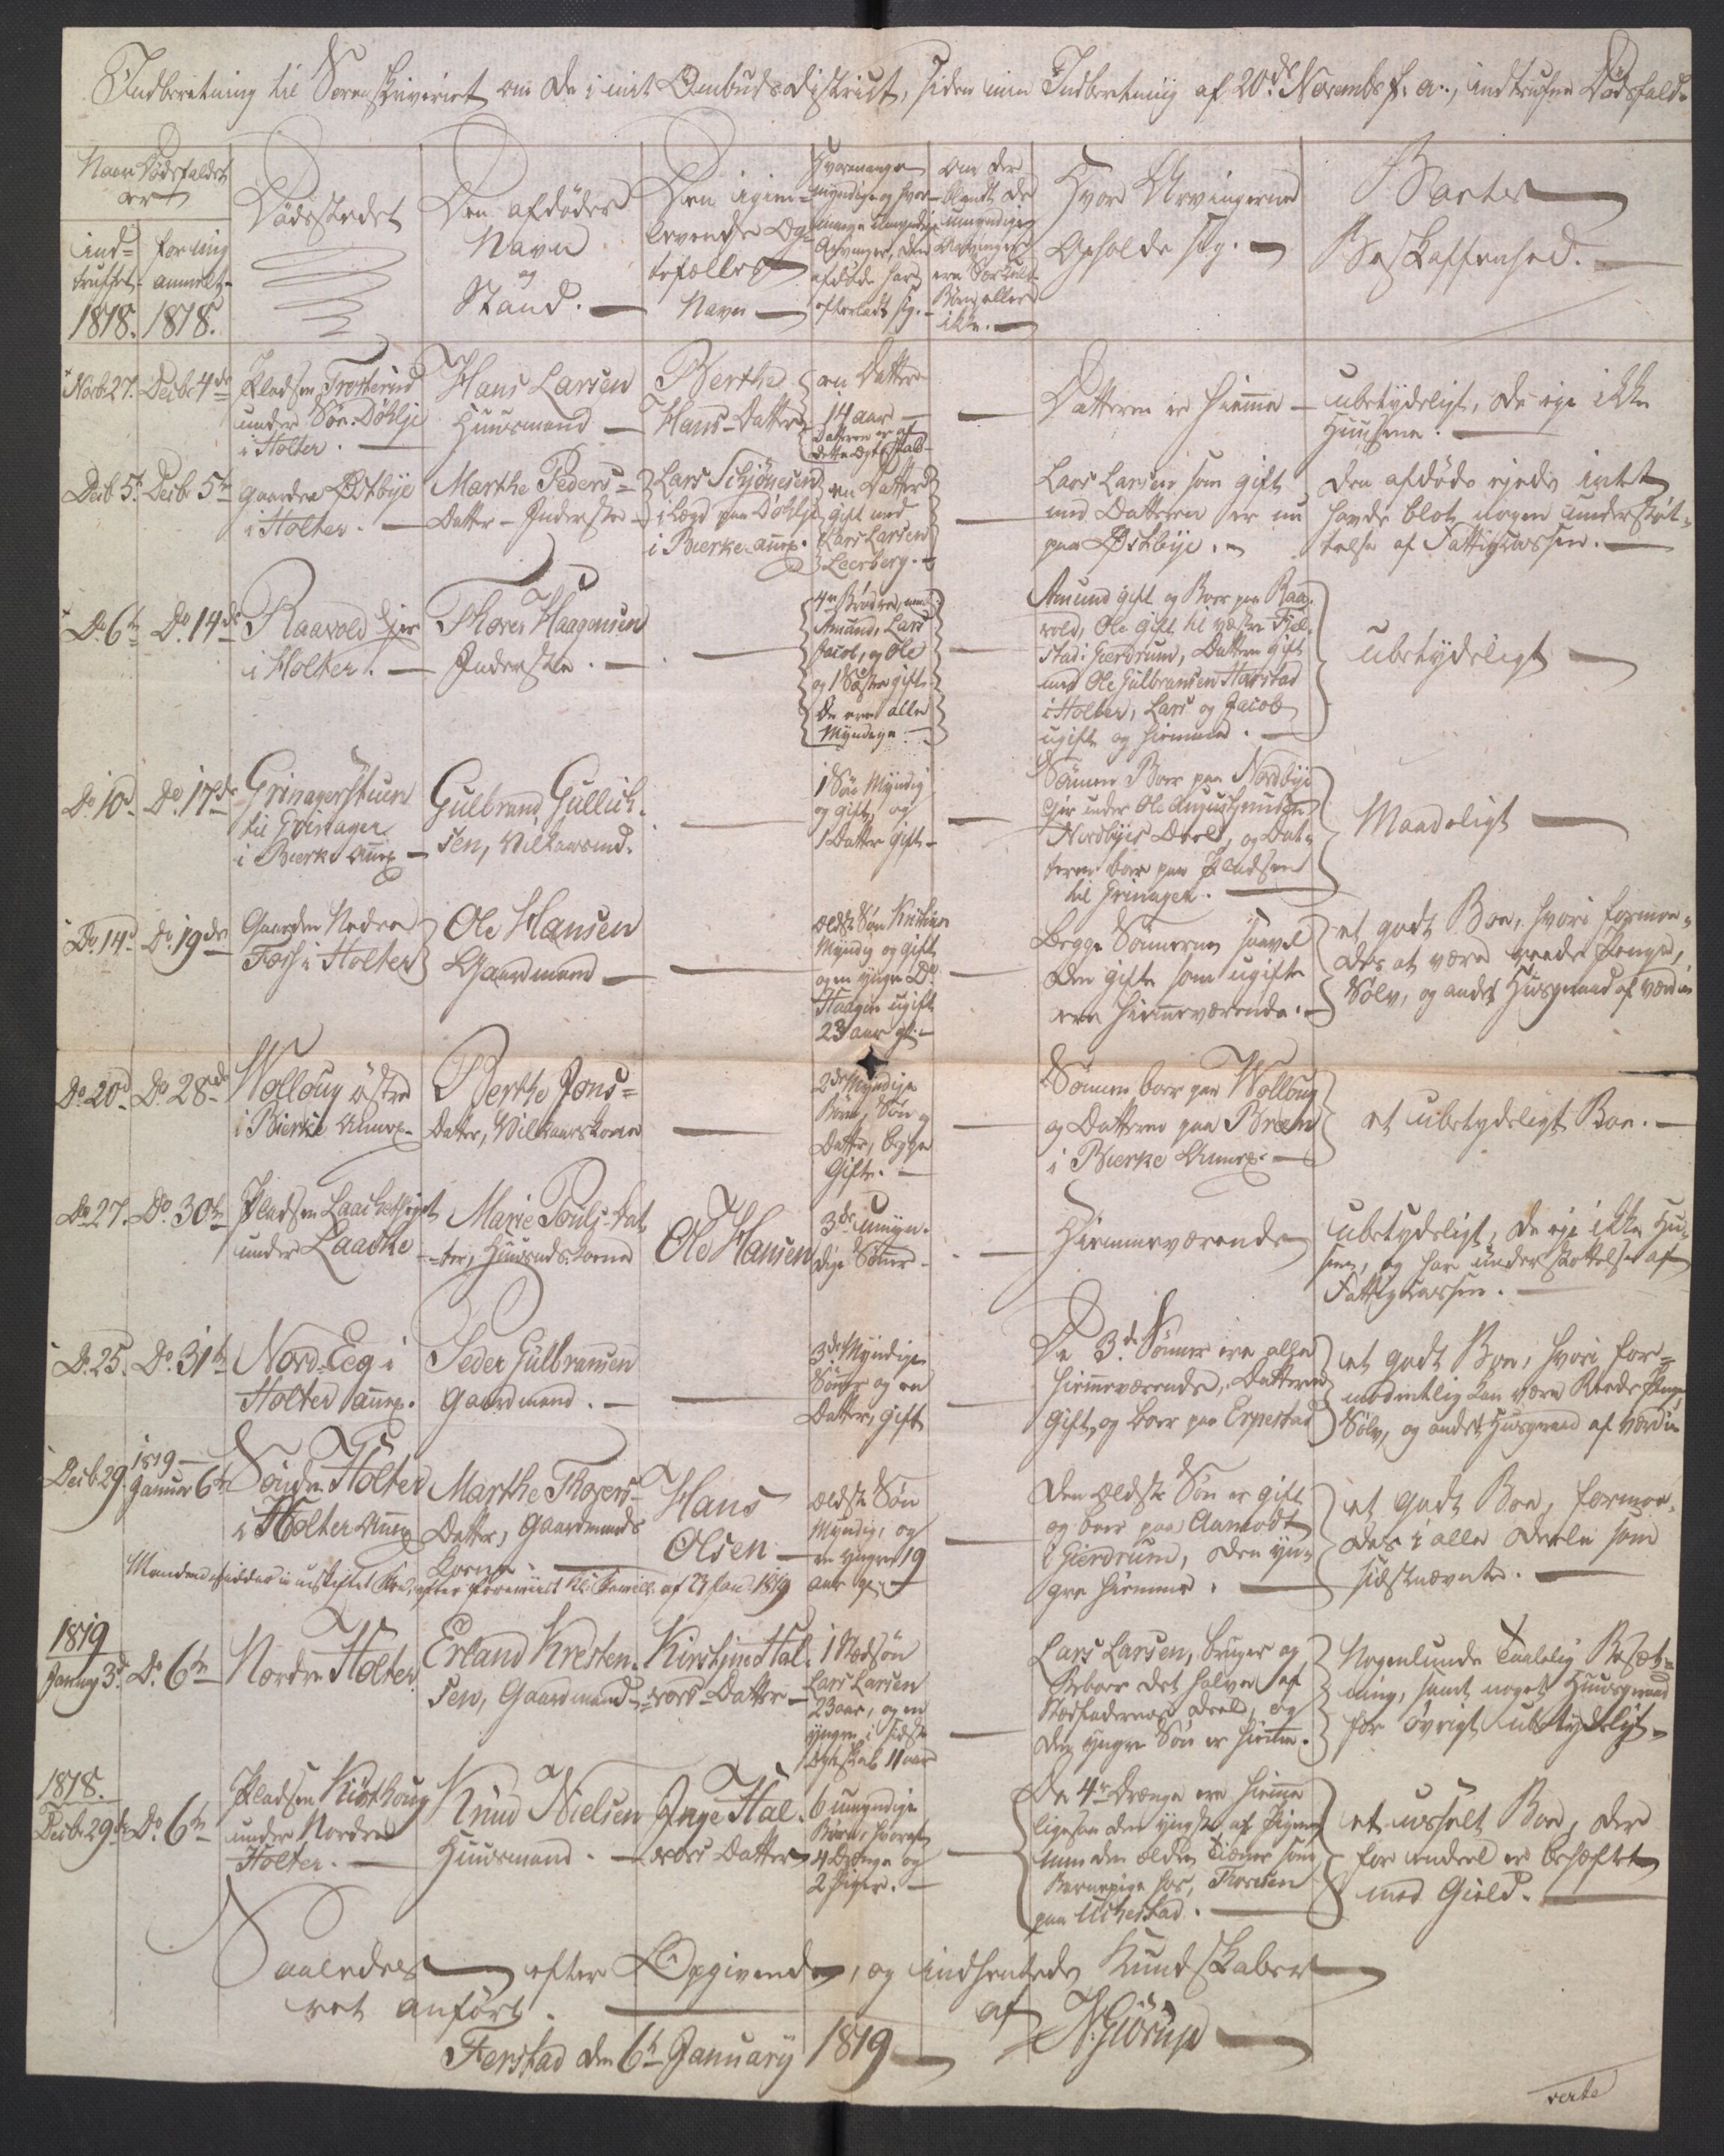 Indberetning til Sorenskriveriet om de i mit Ombuds District, siden min Indberetning af 20de Novembr f. a., indtrufne Dødsfald.
Naar Dødsfaldet
er
ind-
truffet
1818.
for mig
anmeldt
1818.
Dødsstedet
Den afdødes
Navn
og
Stand.
Den igien-
levende Æg-
tefælles
Navn
Hvormange
myndige og hvor-
mange umyndige
Arvinger, den
afdøde har
efterladt sig.
Om der
blandt de
umyndige
Arvinger
ere Særkuld
Børn eller
ikke.
Hvor Arvingerne
Opholde sig.
Boets
Beskaffenhed.
Novb 27. Decbr 4de
Pladsen Trosterud
under Søn. Døhlje
i Holter.
Hans Larsen
Huusmand
Berthe
Hans-Datter
en Datter
14 aar
Datteren er af
dette Ægteskab
Datteren er hiemme
ubetydeligt, de eje ikke
Huusene.
Decb 5t. Decbr 5te
Gaarden Østbye
i Holter.
Marthe Peders-
Datter - Inderste
Lars Schjønesen
i Lægd paa Døhlje
i Bierke annex.
en Datter
gift med
Lars Larsen
Leerberg.
Lars Larsen som gift
med Datteren er nu
paa Østbye.
den afdøde ejede intet
havde blot nogen understøt-
telse af Fattigkassen.
Do 6te Do 14de
Raavold Ejer
i Holter.
Thorer Haagensen
Inderste.
4re Brødre, nml.
Amund, Lars
Jacob, og Ole
og 1 Søster gift
De ere alle
Myndige.
Amund gift og Boer paa Raa-
vold, Ole gift til vestre Fiel-
stad i Gierdrum, Datteren gift
med Ole Gulbransen Harstad
i Holter, Lars og Jacob
ugifte og hiemme.
ubetydeligt
Do 10d. Do 17de
Grinagerstuen
til Grinager
i Bierke Annex
Gulbrand Gullich-
sen, Vilkaarsmd.
1 Søn Myndig
og gift, og
1 Datter gift
Sønnen Boer paa Nordbye
Ejer under Ole Augustinusen
Nordbyes Deel, og Dat-
teren boer paa Pladsen
til Grinager.
Maadeligt
Do 14d. Do 19de
Gaarden Nedre
Foss i Holter
Ole Hansen
Gaardmand
ældste Søn Kristian
Myndig og gift
og en yngre Do
Haagen ugift
23 aar gl.
Begge Sønnerne saavel
den gifte som ugifte
ere hiemmeværende.
et godt Boe, hvori formo-
des at være reede Penge,
Sølv, og andet Huusgeraad af værdie
Do 20d. Do 28de
Wolloug østre
i Bierke Annex
Berthe Jons-
Datter, Vilkaarskone
2de Myndige
Børn, Søn og
Datter, begge
Gifte.
Sønnen boer paa Wolloug
og Datteren paa Bræm
i Bierke Annex.
et ubetydeligt Boe.
Do 27. Do 30te
Pladsen
under Laache
Marie Pouls-Dat-
ter, Huusmds. kone
Ole Hansen
3de umyn-
dige Sønner
Hiemmeværende
ubetydeligt, de eje ikke Hu-
sene, og har understøttelse af
Fattigkassen.
Do 25. Do 31te
Nord-Eeg i
Holter annex.
Peder Gulbransen
Gaardmand.
3de Myndige
Sønner og en
Datter, gift
De 3de Sønner ere alle
hiemmeværende, Datteren
gift og boer paa Erpestad
et godt Boe, hvori for-
modentlig kan være Reede Penge
Sølv, og andet Huusgeraad af værdie
Decb 29. 1819 Januar 6te
Søndre Holter
i Holter Annex
Marthe Thorers-
Datter, Gaardmands
Kone.
Hans
Olsen
ældste Søn
Myndig, og
en yngre 19
aar gl.
Den ældste Søn er gift
og boer paa Aamodt
i Gierdrum, den yn-
gre hiemme.
et godt Boe, formo-
des i alle Deele som
sidstnævnte.
Manden sidder i uskiftet Boe, efter af 23 Jan. 1819
1819
January 3d. Do 6te
Nordre Holter
Erland Kresten-
sen, Gaardmand
Kirstine Hal-
vors-Datter
1 Stedsøn
Lars Larsen
23 aar, og en
yngre i sidste
Ægteskab 11 aar
Lars Larsen, bruger og
beboer det halve af
Stedfaderens Deel, og
den yngre Søn er hiemme.
Nogenlunde taalelig Besæt-
ning, samt noget Huusgeraad
for øvrigt ubetydeligt.
1818.
Decb 29de Do 6te
Pladsen Kirkhoug
under Nordre
Holter.
Knud Nielsen
Huusmand.
Inge Hal-
vors Datter
6 umyndige
Børn, hvoraf
4 Drenge og
2 Piger.
De 4re Drenge ere hiemme
ligesaa den yngste af Pigerne
men den ældre tiener som
Barnepige hos, Thoresen
paa Uchestad.
et usselt Boe, der
for endeel er behæftet
med Gield.
Saaledes efter Opgivende, og indhentede Kundskaber
ret anført.
af
Ferstad den 6te January 1819
N. Giörup
verte